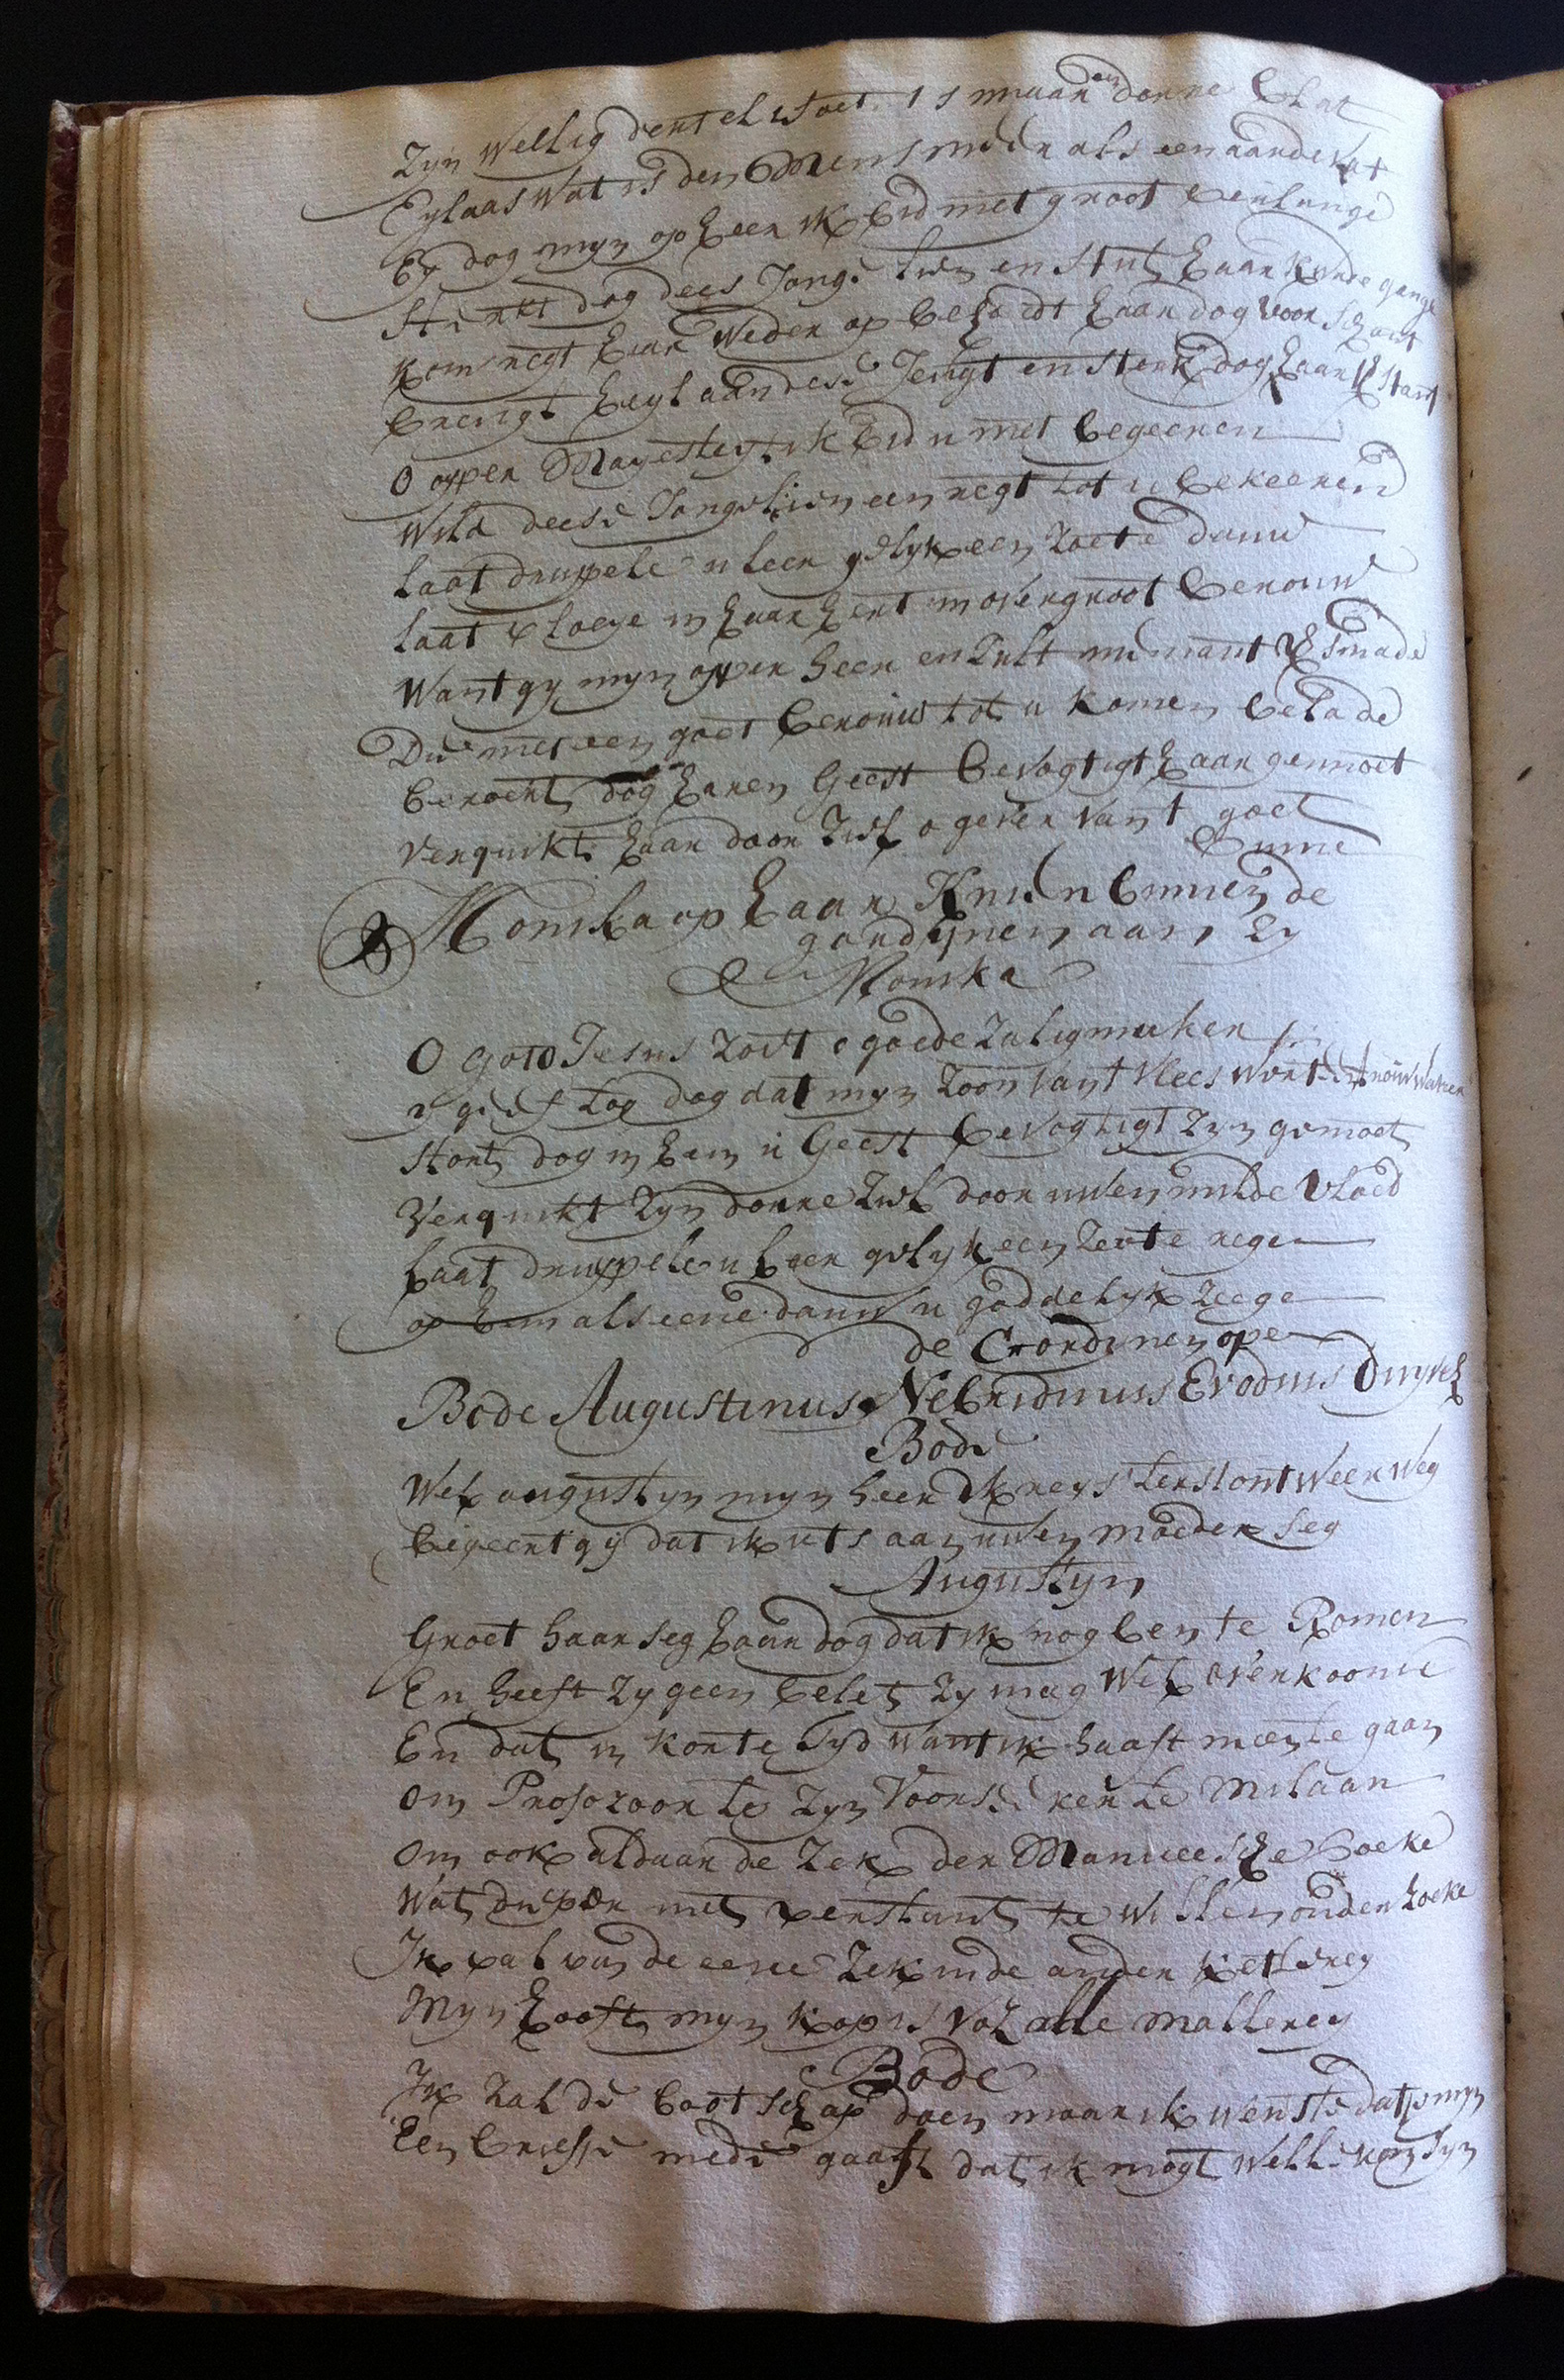 Zijn wellig dertel Voet is maar een dorre blat
Eylaas wat is den Mens meer als een aarde vat
Ey dog myn op heer ik bid met groot verlange
Sterkt dog dees Jonge lien en stut haar quade gange
Kom regt haar weder op behoedt haar dog voor schant
brengt heyl aan dese Jeugt en sterk dog haar verstant
O opper Mayesteyt ik bid u met begeeren
Wild deese Jongelien een regt tot u bekeeren
laat druypele u leer gelyk een zoete dauw
laat vloeye in haar hert in overgroot berouw
Want gy myn opper heer en zult niemant versmade
Die met een goet berouw tot u komen belade
beroert dog haren Geest bevogtigt haar gemoet
verquikt haar door ziel o gever vant goet
binne
Monika op haar Knien binnen de
gordynen aan zy
Monika
O godt Jesus zoet o goede zaligmaker
geef tog dog dat myn zoon vant vlees wort
stort dog in hem u Geest bevogtigt zyn gemoet
Verquikt zyn dorre ziel door uwen milde vloed
laat druypele u leer gelyk een zoete rege
op hem als eene dauw u goddelyk zeege
de Gordinen ope
Bode Augustinus Nebridius Evodius Duyvel
Bode
Wel augustyn myn heer ik reys terstont weer weg
begeert gy dat ik iets aan uwen moeder seg
Augustyn
Groet haar seg haar dog dat ik nog ben te Romen
En heeft zy geen belet zy mag wel overkoome
En dat in korte tyd want ik haast meen te gaan
om Profozoor te zyn Voorseker te Milaan
om ook aldaar de zek der Manicesche boeke
wat dieper met verstant te willen onderzoeke
Ik val van de eene zek in de ander ketterey
Myn hooft myn kop is vol alle mallerey
Bode
Ik zal de bootschap doen maar ik wenste datje myn
Een briefje mede gaaft dat ik mogt wellekom syn